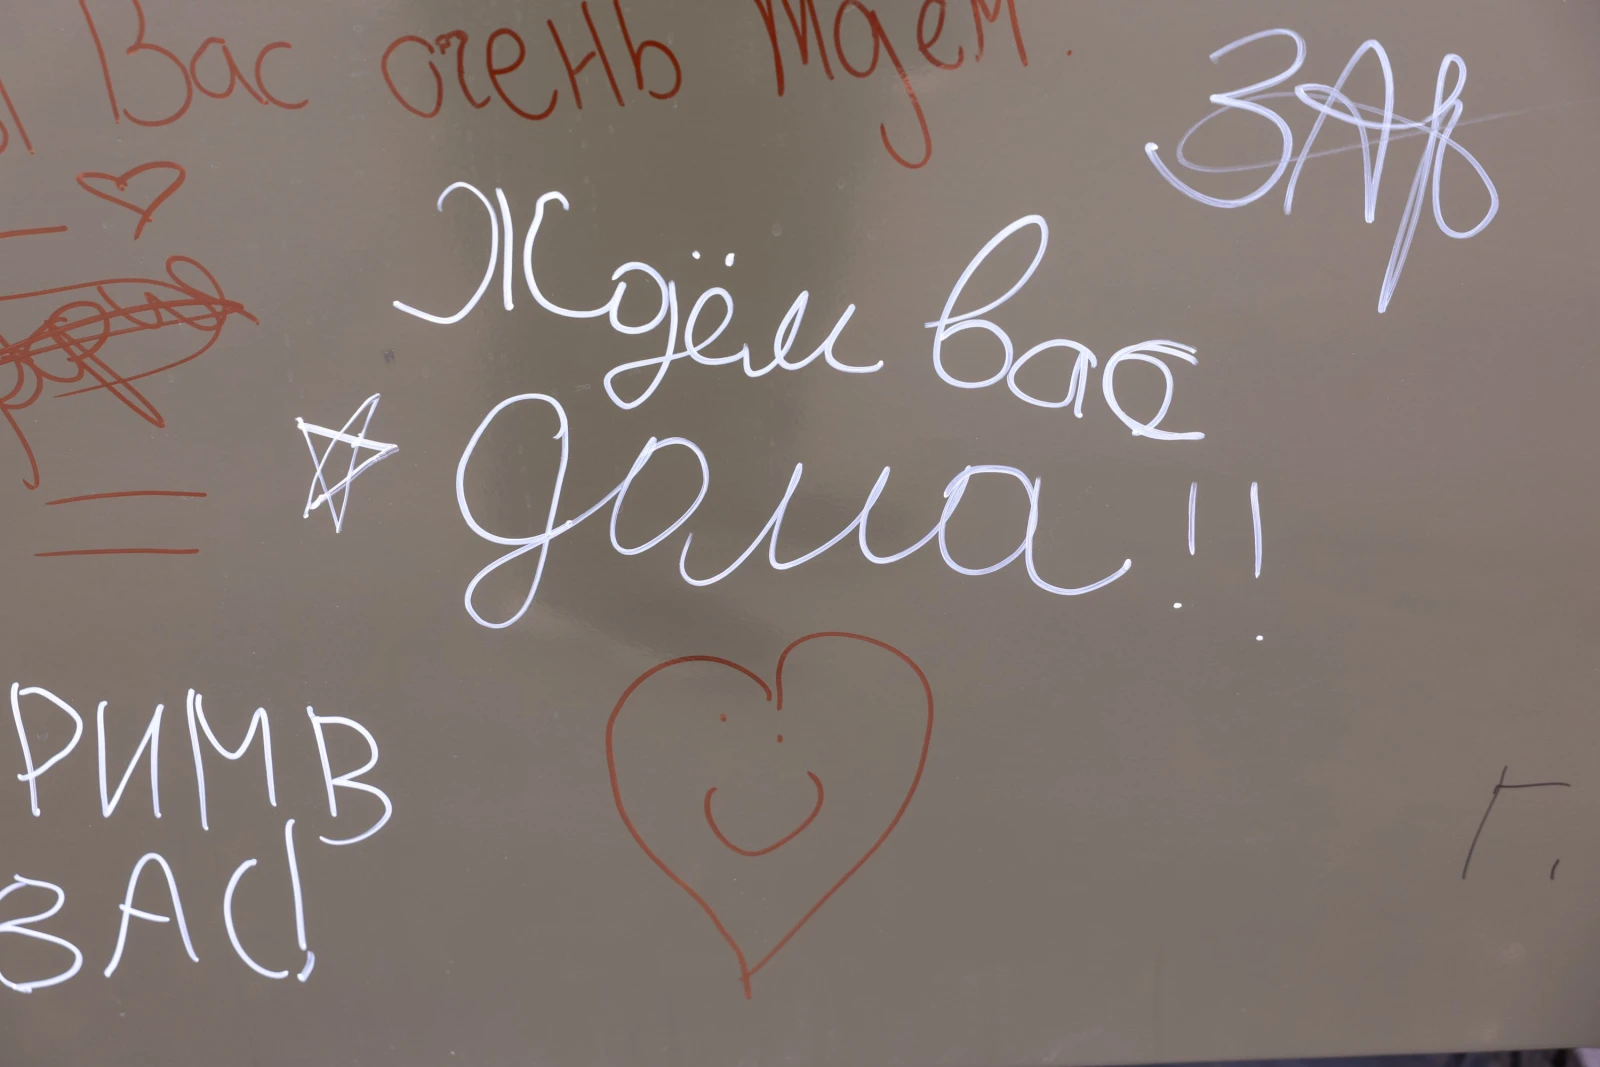 Вас очень ждем.
Ждём вас
дома!!
РИМ В
ВАС!
Г.